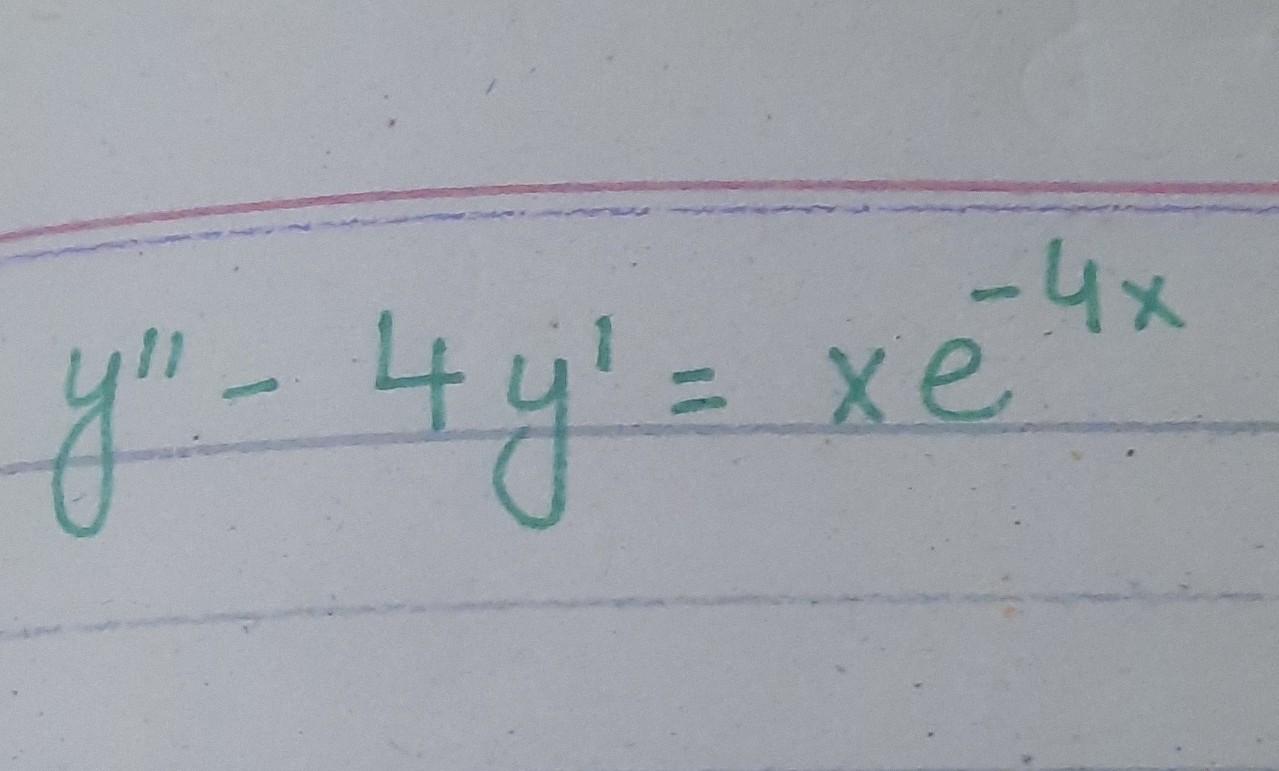 y'' - 4y' = xe^{-4x}